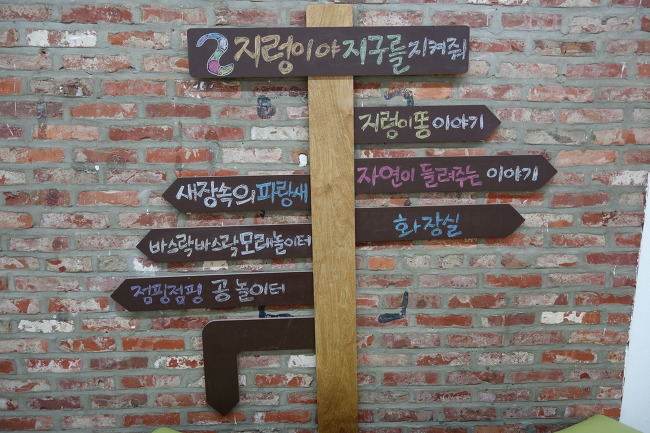 2 지렁이야 지구를 지켜줘
지렁이똥 이야기
자연이 들려주는 이야기
새장속의 파랑새
화장실
바스락바스락 모래놀이터
점핑점핑 공 놀이터